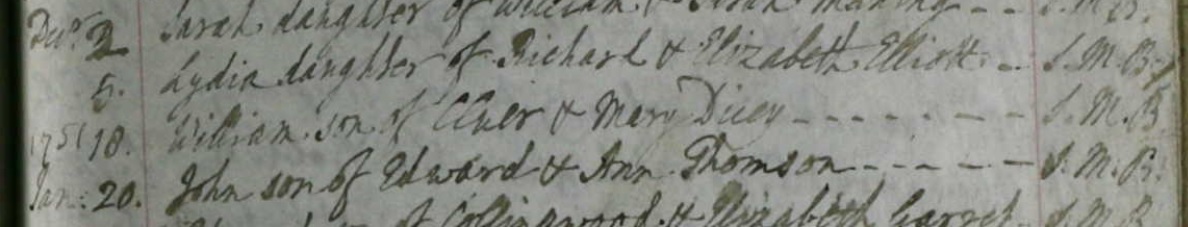 Decr. 2 Sarah daughter of William & Sarah Maning - - S. M. B.
5. Lydia daughter of Richard & Elizabeth Elliott - - S. M. B.
1751 18. William son of & Mary Dicey - - - - - - - S. M. B
Jan: 20. John son of Edward & Ann Thomson - - - - - S. M. B.
of Collingwood & Elizabeth Garret - S. M. B